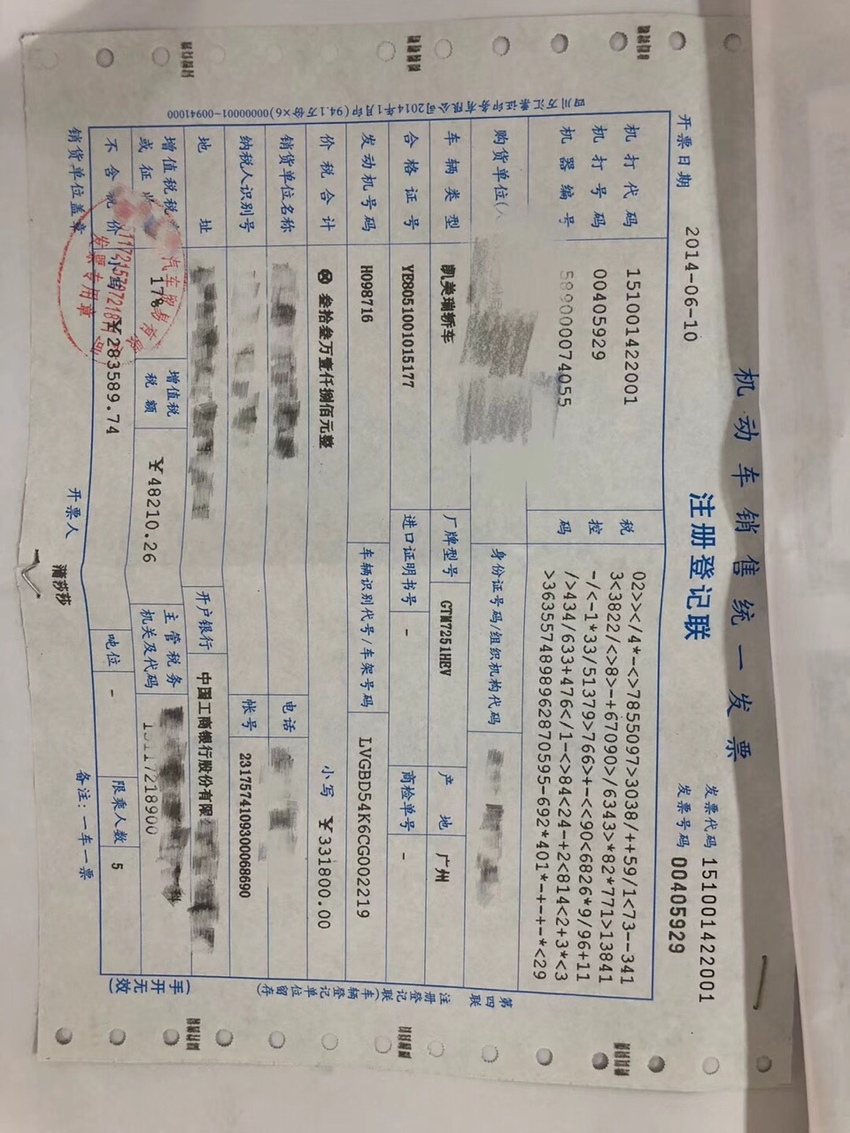 机动车销售统一发票
注册登记联
发票代码 151001422001
发票号码 00405929
开票日期 2014-06-10
机打代码 151001422001
机打号码 00405929
机器编号 589000074055
税控码
02>></4*-<>7855097>3038/++59/1<73--341
3<3822/<>8>-+67090>/6343>*82*771>13841
-/<-1*33/51379>766>+-<<90<6826*9/96+11
/>434/633+476</1-<>84<24-+2<814<2+3*<3
>3635574898962870595-692*401*-+-+-*<29
购货单位(人
身份证号码/组织机构代码
车辆类型 凯美瑞轿车 厂牌型号 GTM7251HEV 产地 广州
合格证号 YE8051001015177 进口证明书号 - 商检单号 -
发动机号码 H098716 车辆识别代号/车架号码 LVGBD54K6CG002219
价税合计 ⊗ 叁拾叁万壹仟捌佰元整 小写 ¥331800.00
销货单位名称 电话
纳税人识别号 帐号 2317574109300068690
地址 开户银行 中国工商银行股份有限
增值税税
或征 17% 增值税税额 ¥48210.26 主管税务机关及代码 15117218900
不含税价 小写 ¥283589.74 吨位 - 限乘人数 5
销货单位盖章 开票人 蒲莎莎 备注:一车一票
第四联 注册登记联(车辆登记单位留存)
手开无效
四川万汇票证印务有限公司2014年1月印(94.1万份×6)00000001-00941000
汽车服务有限
发票专用章